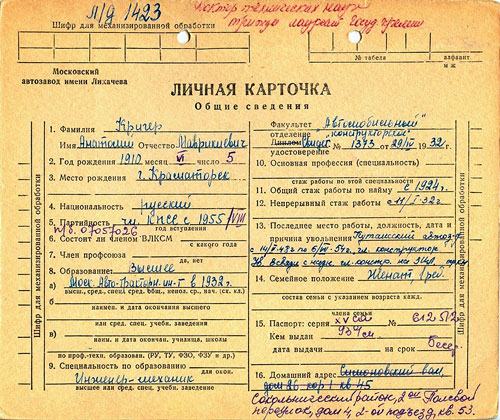 М/д 1423
Доктор технических наук
трижды лауреат Госуд. премии
Шифр для механизированной обработки
№ табеля
алфавит
м/ж
Московский
автозавод имени Лихачева
ЛИЧНАЯ КАРТОЧКА
Общие сведения
Шифр для механизированной обработки
1. Фамилия Кригер
Имя Анатолий Отчество Маврикиевич
2. Год рождения 1910 месяц VI число 5
3. Место рождения г. Краматорск
4. Национальность русский
5. Партийность чл. КПСС с 1955/VIII
п/б. 07057026 год вступления
6. Состоит ли членом ВЛКСМ
с какого года
7. Член профсоюза
да, нет
8. Образование: Высшее
а) Моск. Авто-Тракторн. ин-т в 1932 г.
высш., сред. спец., сред. общ., непол. ср., нач. (ск. кл.)
б)
наимен. и дата окончания высшего
или сред. спец. учеби. заведения
в)
наим. и дата окончан. училища, школы
по проф.-техн. образован. (РУ, ТУ, ФЗО, ФЗУ и др.)
9. Специальность по образованию
Инженер-механик
высшее или сред. спец. учеби. заведение
Факультет Автомобильный
отделение "конструкторское"
Диплом Свид. № 1373 от 29/IV 1932 г.
удостоверение
10. Основная профессия (специальность)
стаж работы по этой специальности
11. Общий стаж работы по найму с 1924 г.
12. Непрерывный стаж работы с 11/I-32 г.
13. Последнее место работы, должность, дата и
причина увольнения
гл. конструктор
14. Семейное положение Женат,
состав семьи с указанием возраста кажд.
члена семьи
15. Паспорт: серия XVСЮ № 612512
Кем выдан 934 о/м
дата выдачи на срок бесср.
16. Домашний адрес Симоновский вал,
дом 26, кор. 1 кв. 45
Сокольнический район, 2ой Полевой
переулок, дом 4, 2-ой подъезд, кв. 53.
Шифр для механизированной обработки